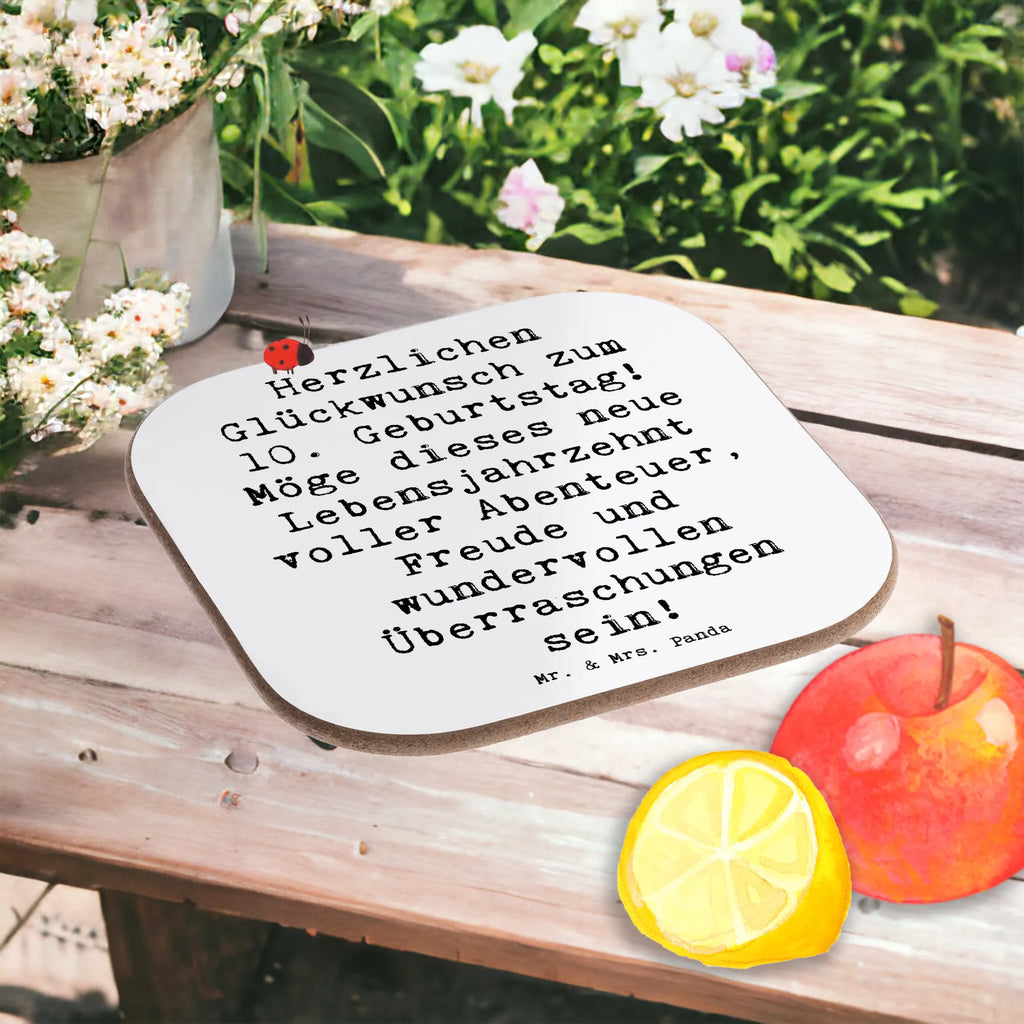 Herzlichen
Glückwunsch zum
10. Geburtstag!
Möge dieses neue
Lebensjahrzehnt
voller Abenteuer,
Freude und
wundervollen
Überraschungen
sein!
Mr. & Mrs. Panda